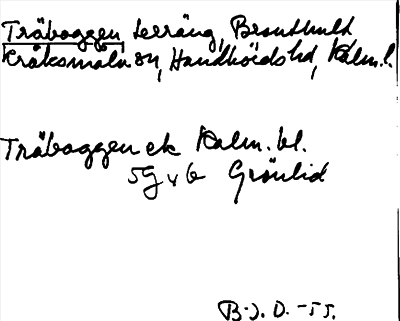 Träbaggen terräng, Branthult
Kråksmåla sn, Handbörds hd, Kalm. l.
Träbaggen ek Kalm. bl.
5G v b Grönlid
B. J. O. -55.